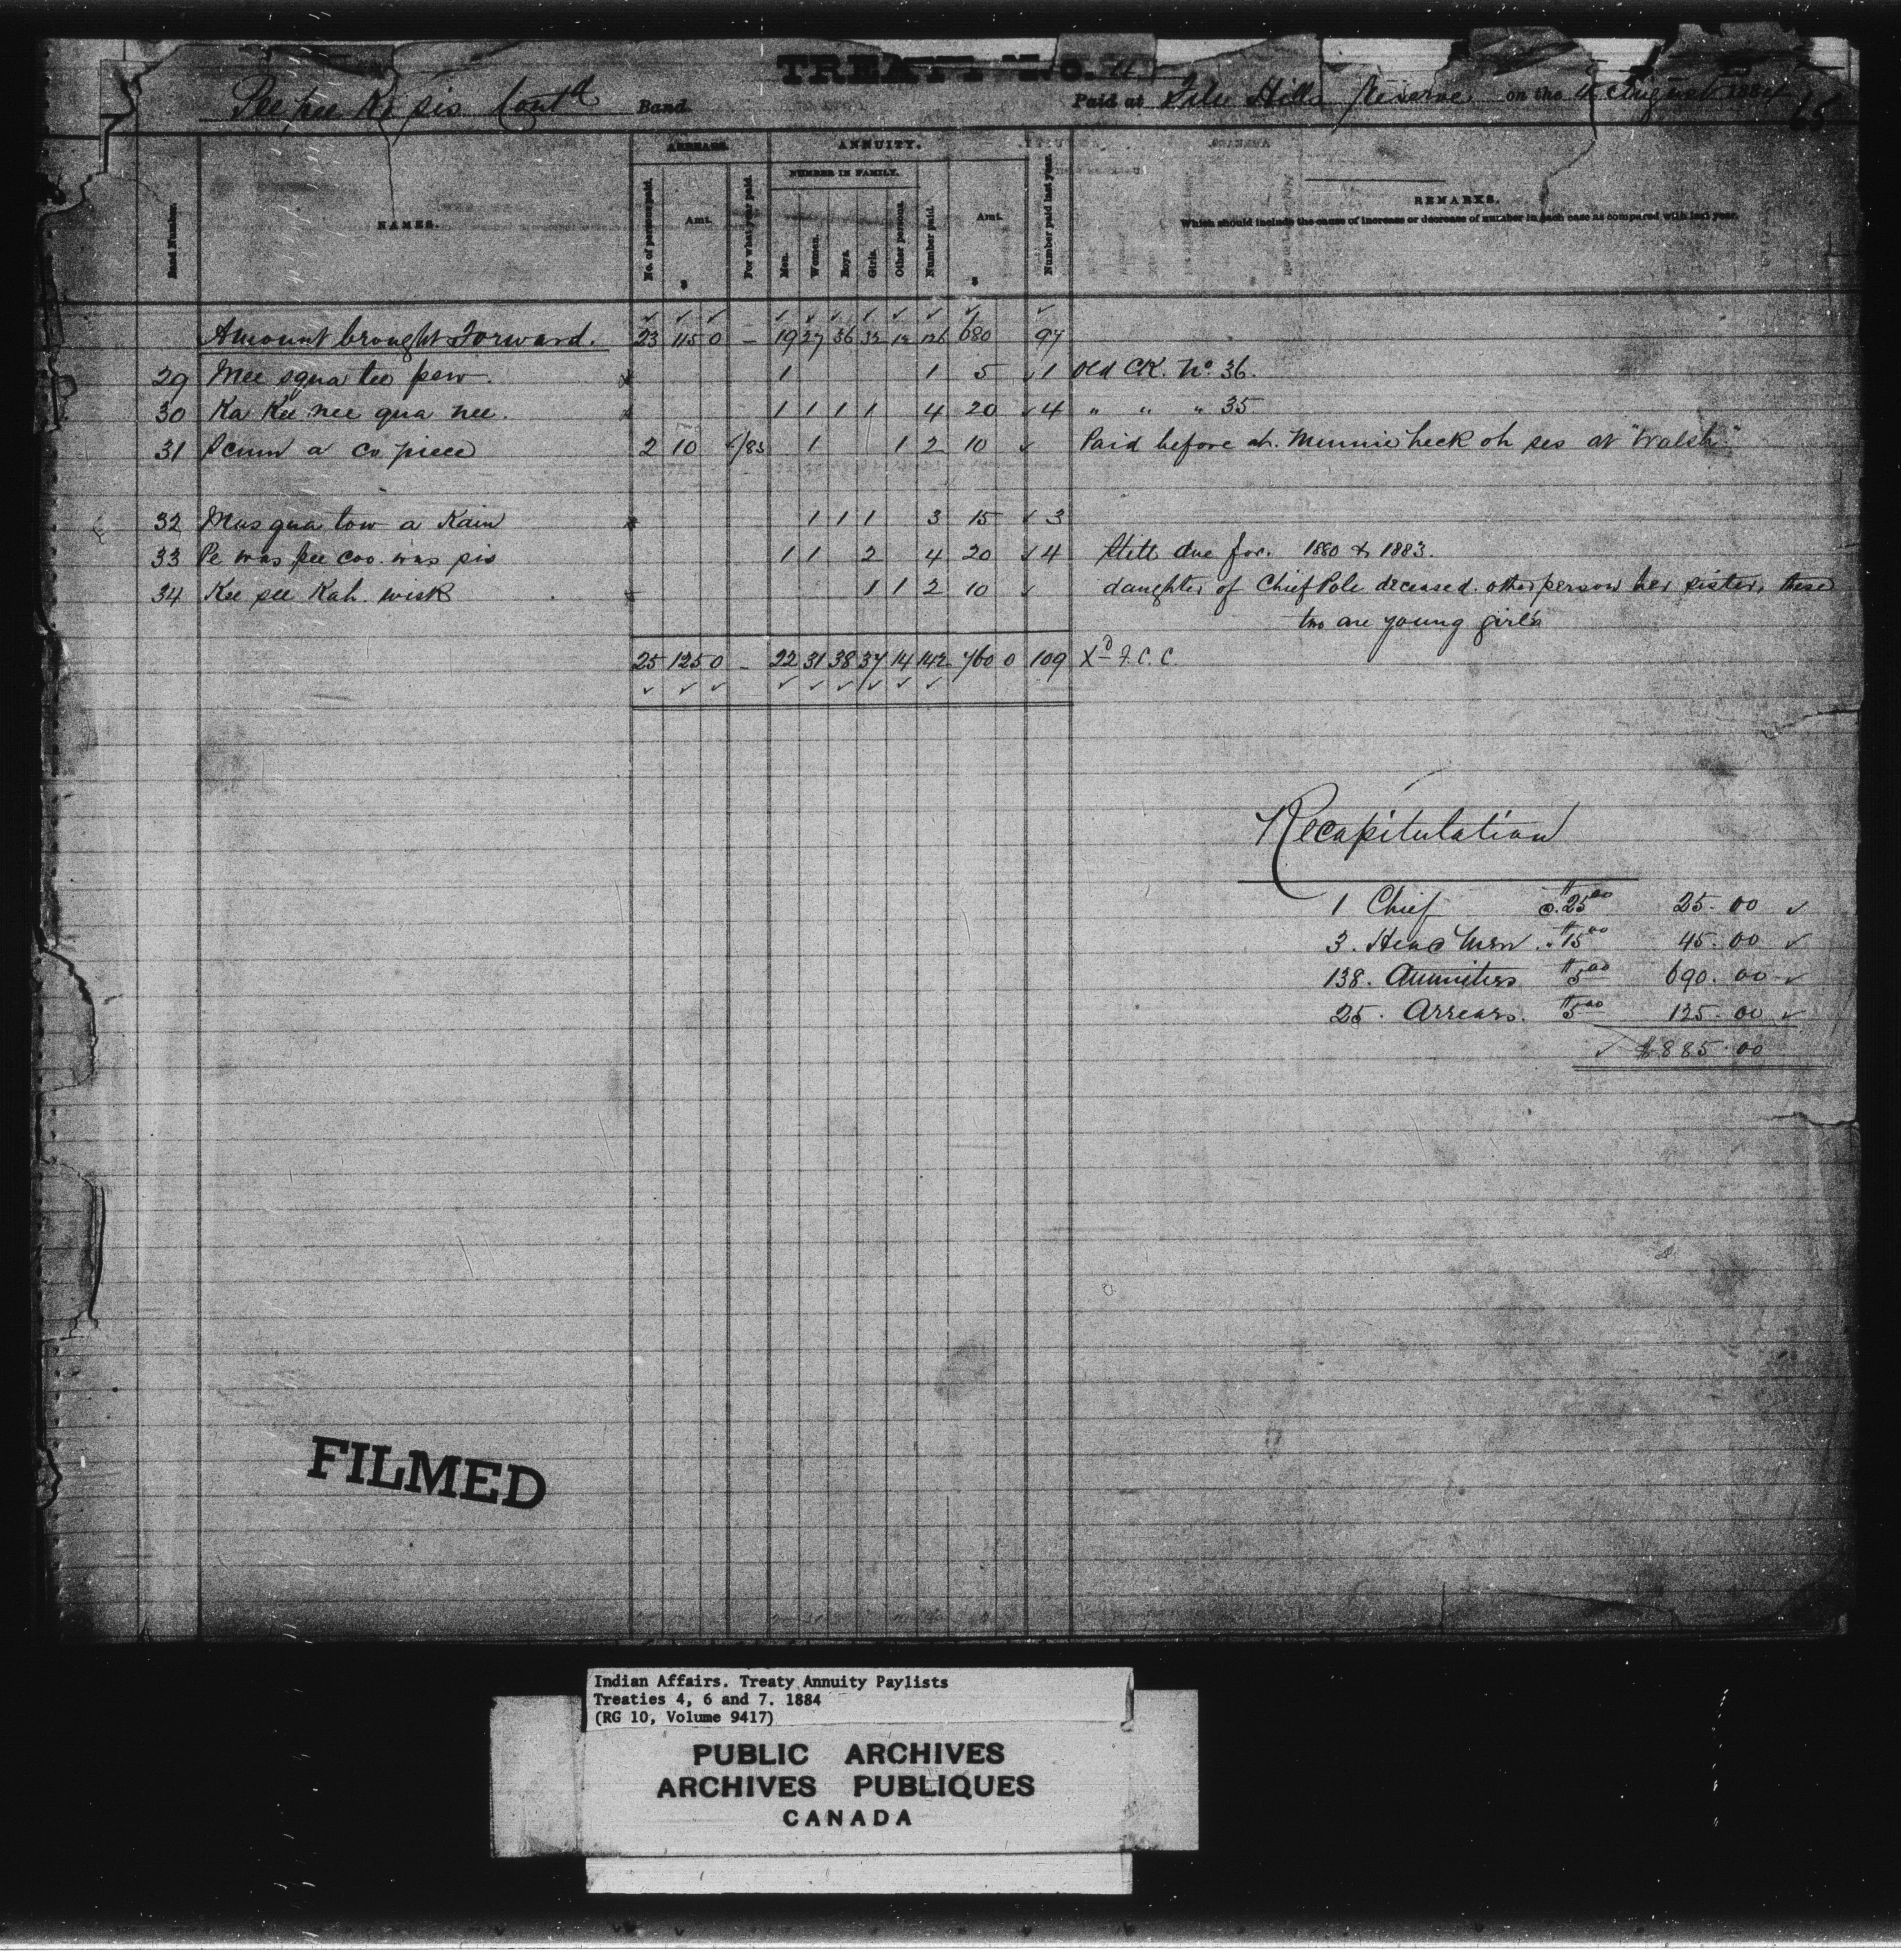 TREATY No. 4
Pee pee Ke sis Contd Band. Paid at File Hills Reserve on the August 1884
65
ARREARS. ANNUITY.
NUMBER IN FAMILY.
Band Number. NAMES. No. of persons paid. Amt. $ For what year paid. Men. Women. Boys. Girls. Other persons. Number paid. Amt. $ Number paid last year. REMARKS.
Which should include the cause of increase or decrease of number in each case as compared with last year.
Amount brought Forward. 23 115 0 – 19 27 36 32 12 126 680 97
29 Mee squa tee pew. 1 1 5 1 Old CK. No. 36.
30 Ka Kee nee qua nee. 1 1 1 1 4 20 4 " " " 35
31 a co piece 2 10 /83 1 1 2 10 Paid before at Minnie heck oh ses at "Walsh"
32 Mus qua tow a Kain 1 1 1 3 15 3
33 Pe was pee coo was pis 1 1 2 4 20 4 Still due for 1880 & 1883.
34 Kee see Kah wisk 1 1 2 10 daughter of Chief Pole deceased. other person her sister, these
two are young girls
25 125 0 – 22 31 38 37 14 142 760 0 109 Xd J.C.C.
Recapitulation
1 Chief @ $25 00 25.00
3. Head Men " $15 00 45.00
138. Annuities $5 00 690.00
25. Arrears. $5 00 125.00
$885.00
FILMED
Indian Affairs. Treaty Annuity Paylists
Treaties 4, 6 and 7. 1884
(RG 10, Volume 9417)
PUBLIC ARCHIVES
ARCHIVES PUBLIQUES
CANADA